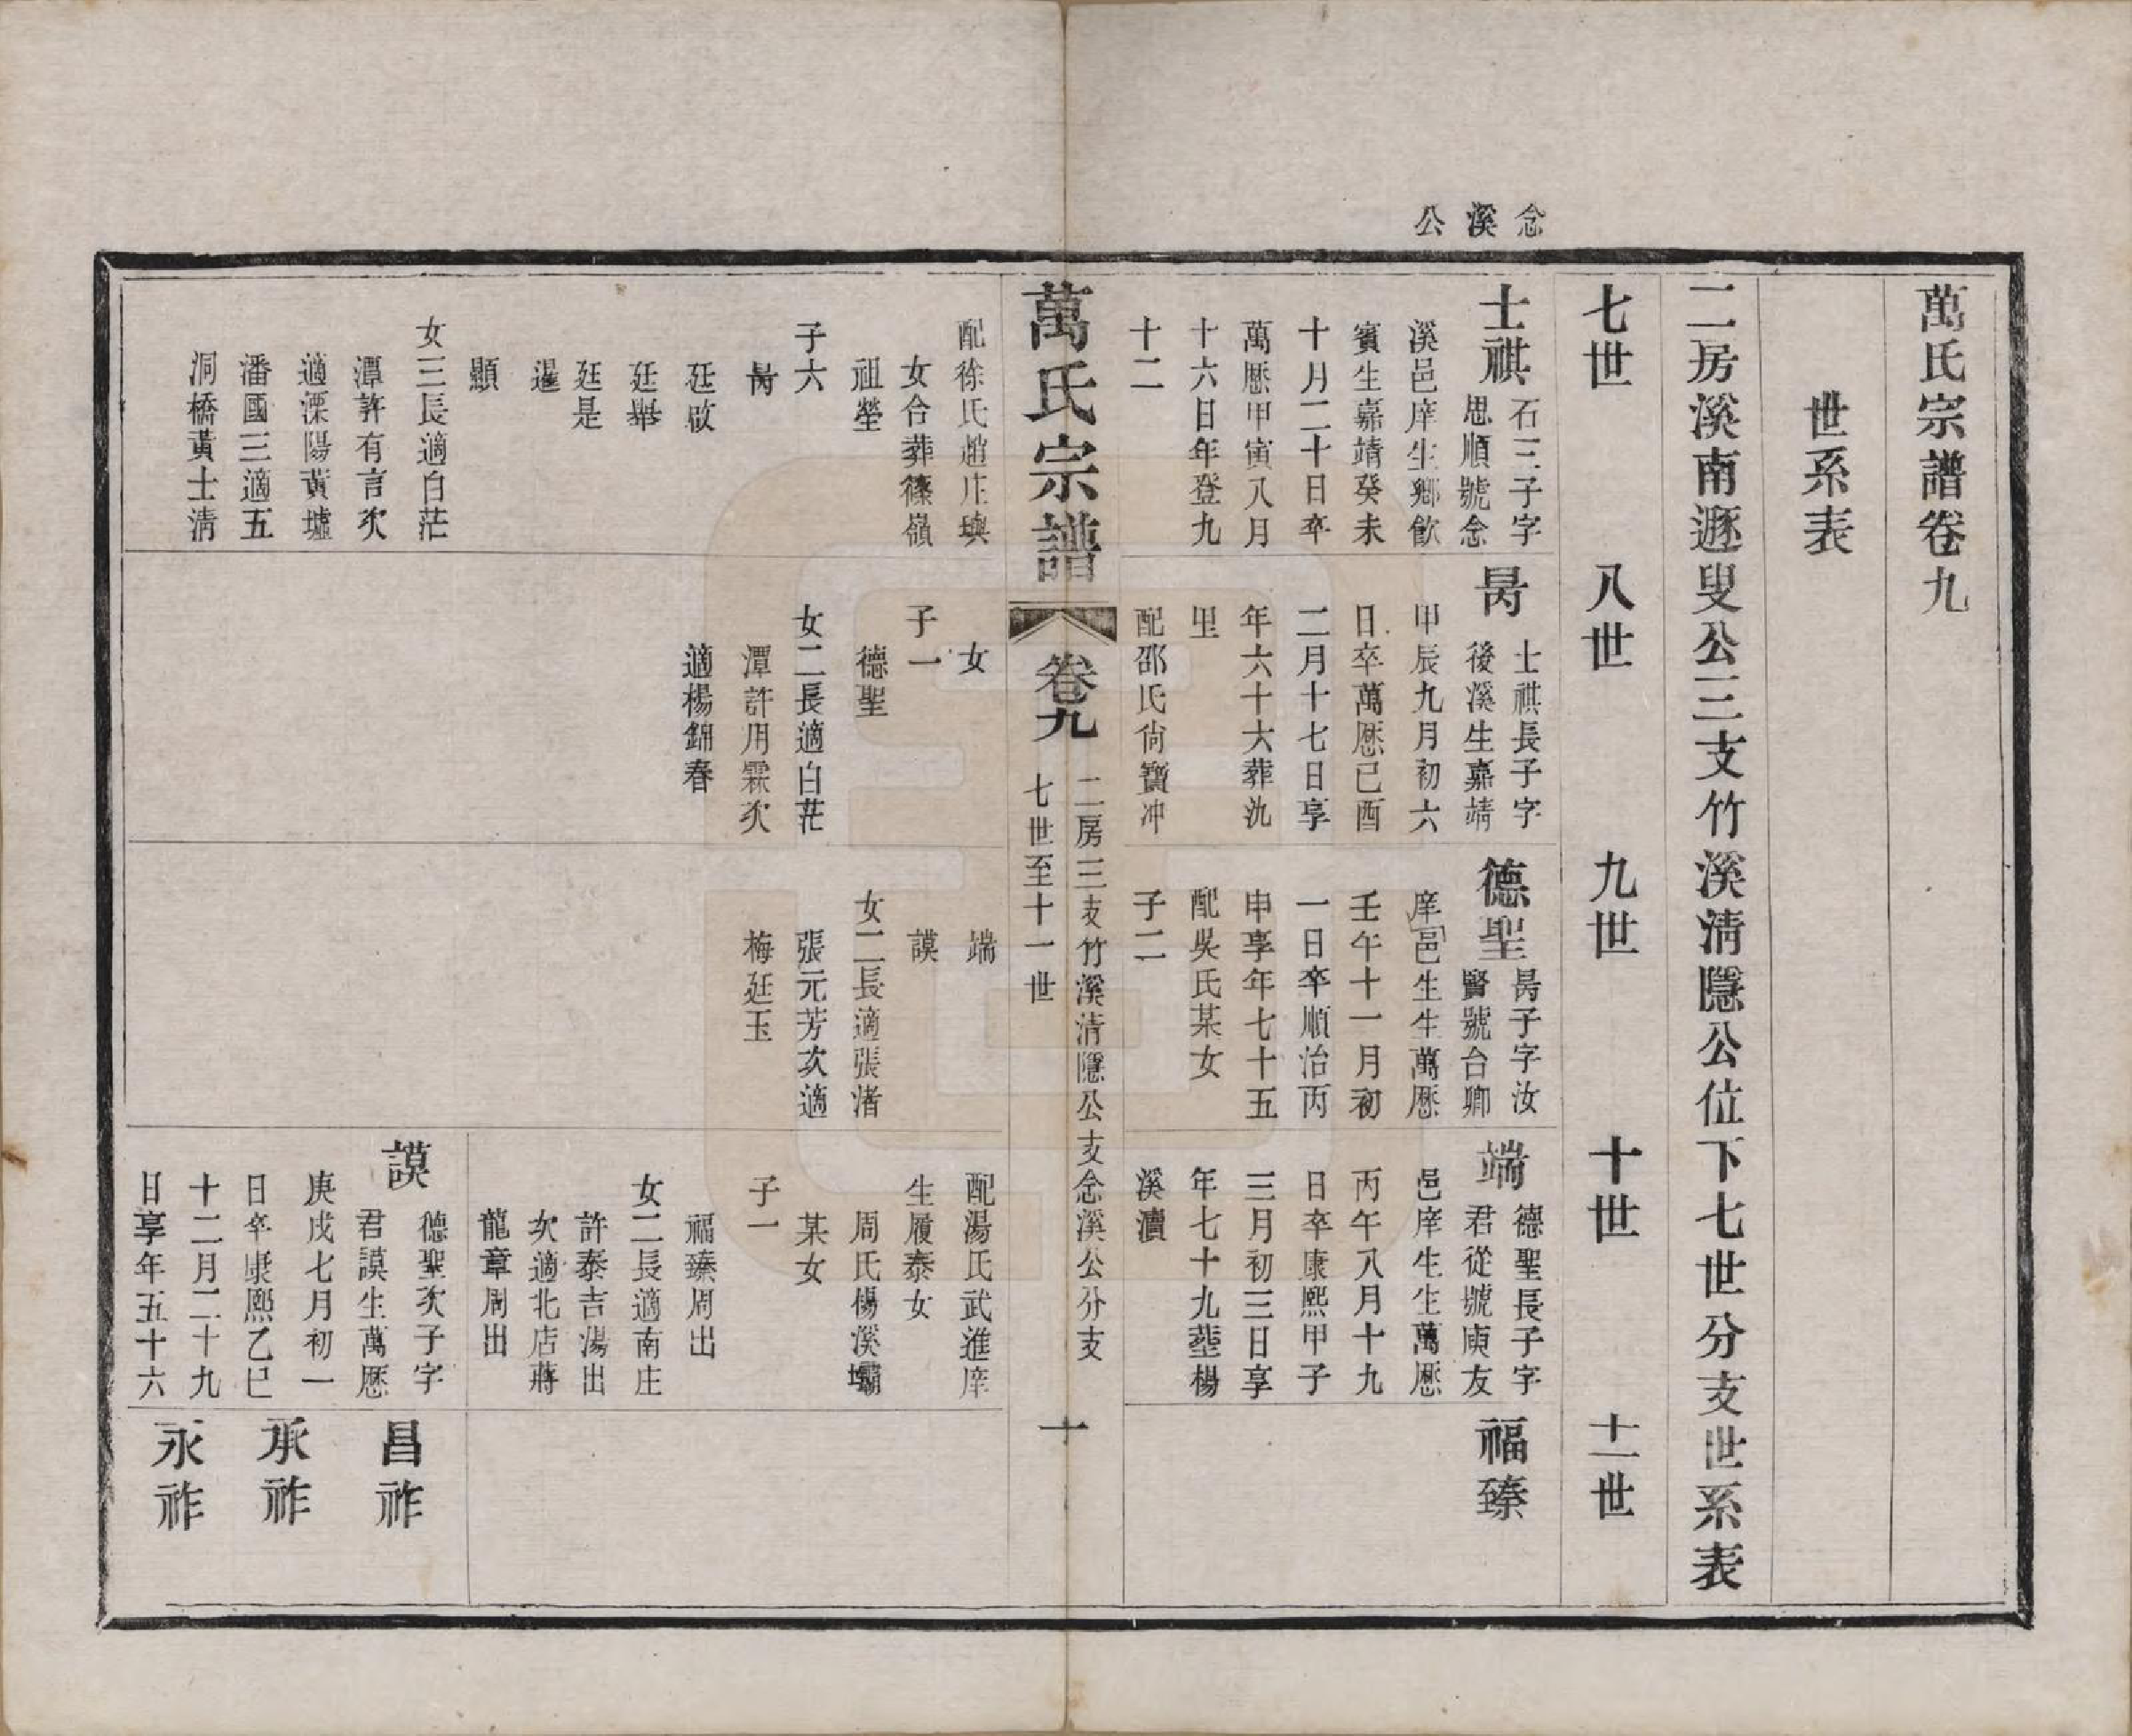 念溪公
萬氏宗譜卷九
世系表
二房溪南遯叟公三支竹溪清隱公位下七世分支世系表
七世
八世
九世
十世
十一世
士祺
石三子字
思順號念
溪邑庠生鄉飲
賓生嘉靖癸未
十月二十日卒
萬厯甲寅八月
十六日年登九
十二
昺
士祺長子字
後溪生嘉靖
甲辰九月初六
日卒萬厯己酉
二月十七日享
年六十六葬氿
里
配邵氏尙寶冲
德聖
昺子字汝
賢號台卿
庠邑生生萬厯
壬午十一月初
一日卒順治丙
申享年七十五
配吳氏某女
子二
端
德聖長子字
君從號庾友
邑庠生生萬厯
丙午八月十九
日卒康熙甲子
三月初三日享
年七十九塟楊
溪瀆
福臻
萬氏宗譜
卷九
二房三支竹溪清隱公支念溪公分支
七世至十一世
十
配徐氏趙庄墺
女合葬篠嶺
祖塋
子六
昺
廷敭
廷舉
廷是
暹
顯
女三長適白茫
潭許有言次
適溧陽黃墟
潘國三適五
洞橋黃士清
女
子一
德聖
女二長適白茫
潭許用霖次
適楊錦春
端
謨
女二長適張渚
張元芳次適
梅廷玉
配湯氏武進庠
生履泰女
周氏楊溪壩
某女
子一
福臻周出
女二長適南庄
許泰吉湯出
次適北店蔣
龍章周出
謨
德聖次子字
君謨生萬厯
庚戌七月初一
日卒康熙乙巳
十二月二十九
日享年五十六
昌祚
承祚
永祚